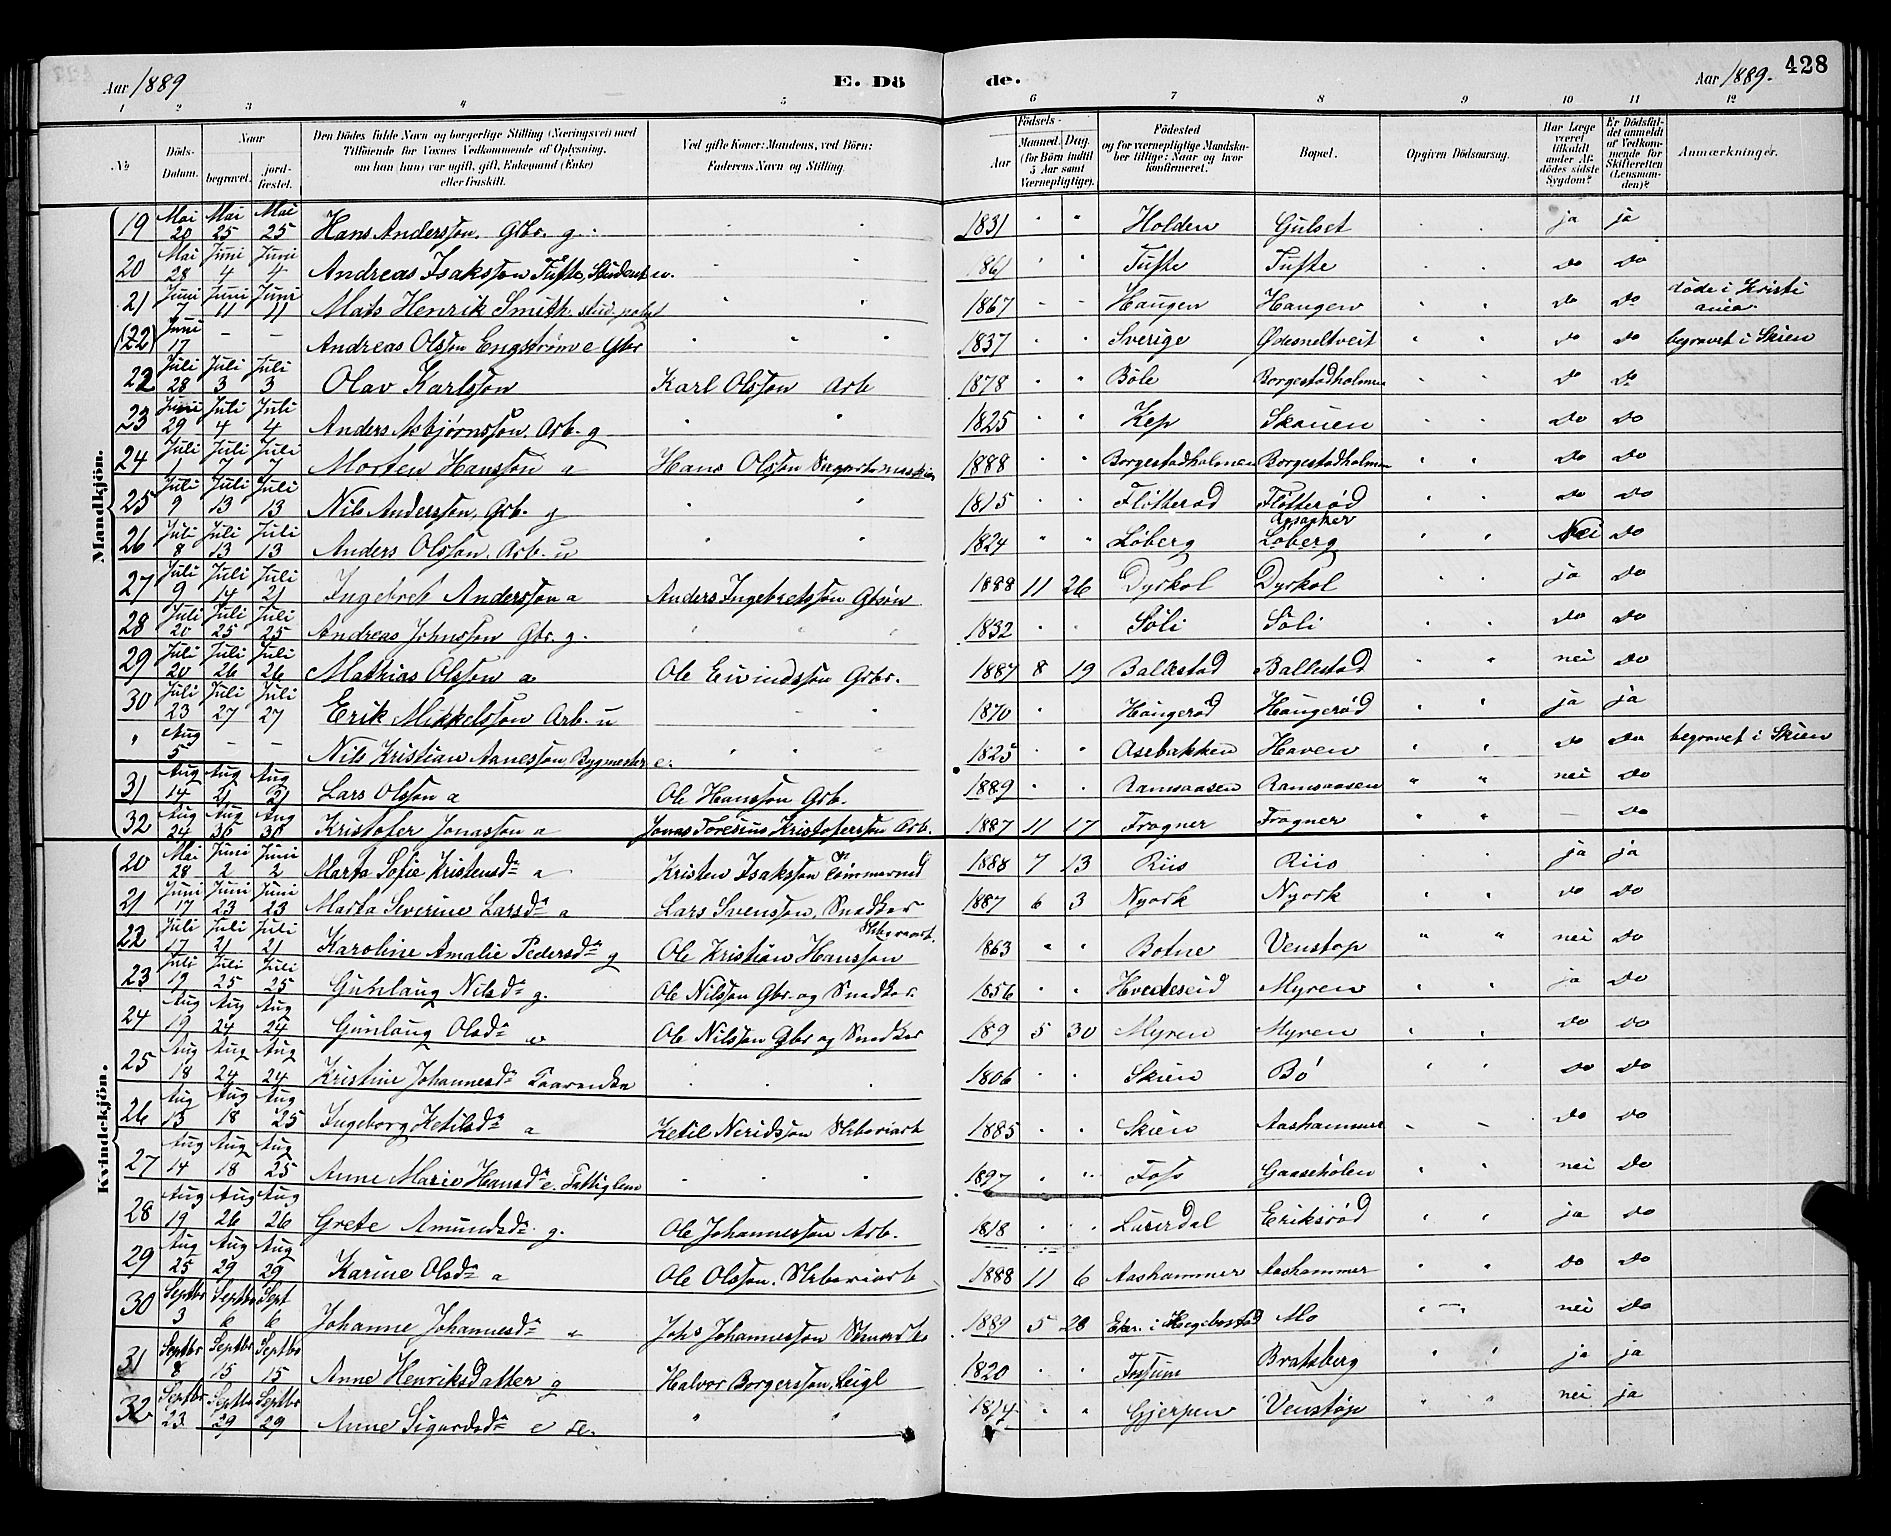 Aar 1889 E. Dö de. Aar 1889. 428
1 2 3 4 5 6 7 8 9 10 11 12
No Döds-Datum. Naar begravet. jord-fæstet. Den Dödes fulde Navn og borgerlige Stilling (Næringsvei) med Tilföiende for Voxnes Vedkommende af Oplysning, om han (hun) var ugift, gift, Enkemand (Enke) eller fraskilt. Ved gifte Koner: Mandens, ved Börn: Faderens Navn og Stilling. Födsels- Aar Maaned. Dag. (for Börn indtil 5 Aar samt Værnepligtige). Födested og for værnepligtige Mandskaber tillige: Naar og hvor konfirmeret. Bopæl. Opgiven Dödsaarsag. Har Læge været tilkaldt under Afdödes sidste Sygdom? Er Dödsfaldet anmeldt af Vedkommende for Skifteretten (Lensmanden)? Anmærkninger.
Mandkjön.
19 Mai 20 Mai 25 Mai 25 Hans Anderssøn, Gbr. g. " " 1831 " " Holden Gulset " " ja ja
20 Mai 28 Juni 4 Juni 4 Andreas Isakssøn Tufte, Student u. " " 1861 " " Tufte Tufte " " Do Do
21 Juni 7 Juni 11 Juni 11 Mats Henrik Smith stud. " " 1867 " " Haugen Haugen " " Do Do døde i Kristiania
(22) Juni 17 – – Andreas Olssøn Engstrøm e Gbr " " 1837 " " Sverige " " Do Do begravet i Skien
22 Juli 28 Juli 3 Juli 3 Olav Karlssøn Karl Olssøn Arb 1878 " " Bøle Borgestadholmen " " Do Do
23 Juni 29 Juli 4 Juli 4 Anders Asbjørnssøn, Arb. g " " 1825 " " Kep Skauen " " Do Do
24 Juli 1 Juli 7 Juli 7 Morten Hanssøn a Hans Olssøn 1888 " " Borgestadholmen Borgestadholmen " " Do Do
25 Juli 9 Juli 13 Juli 13 Nils Anderssøn, Arb. g " " 1815 " " Fløtterød Fløtterød " " Do Do
26 Juli 8 Juli 13 Juli 13 Anders Olssøn, Arb. u " " 1824 " " Løberg Løberg " " Nei Do
27 Juli 9 Juli 14 Juli 21 Ingebret Anderssøn a Anders Ingebretssøn 1888 11 26 Dyrkol Dyrkol " " ja Do
28 Juli 20 Juli 25 Juli 25 Andreas Johnssøn Gbr. g. " " 1832 " " Søli Søli " " Do Do
29 Juli 20 Juli 26 Juli 26 Mathias Olssøn a Ole Eivindssøn Gbr. 1887 8 19 Ballestad Ballestad " " nei Do
30 Juli 23 Juli 27 Juli 27 Erik Mikkelssøn Arb. u " " 1870 " " Haugerød Haugerød " " ja ja
" Aug 5 – – Nils Kristian Aanessøn, Bygmester e. " " 1825 " " Aasebakken Haven " " Do Do begravet i Skien
31 Aug 14 Aug 21 Aug 21 Lars Olssøn a Ole Hanssøn Arb. 1889 " " Ramsaasen Ramsaasen " " nei Do
32 Aug 24 Aug 30 Aug 30 Kristofer Jonassøn a Jonas Toresius Kristoferssøn Arb. 1887 11 17 Frogner Frogner " " – Do
Kvindekjön.
20 Mai 28 Juni 2 Juni 2 Marta Sofie Kristensdr a Kristen Isakssøn Tømmermd 1888 7 13 Riis Riis " " ja ja
21 Juni 17 Juni 23 Juni 23 Marta Severine Larsdr a Lars Svenssøn, Snedker 1887 6 3 Nyork Nyork " " Do Do
22 Juli 17 Juli 21 Juli 21 Karoline Amalie Pedersdr g Ole Kristian Hanssøn 1863 " " Botne Venstøp " " nei Do
23 Juli 19 Juli 25 Juli 25 Gunlaug Nilsdr g. Ole Nilssøn Gbr. og Snedker. 1856 " " Hviteseid Myren " " ja Do
24 Aug 19 Aug 24 Aug 24 Gunlaug Olsdr a Ole Nilssøn Gbr og Snedker 189 5 30 Myren Myren " " Do Do
25 Aug 18 Aug 24 Aug 24 Kristine Johannesdr " " 1806 " " Skien Bø " " Do Do
26 Aug 15 Aug 18 Aug 25 Ingeborg Ketilsdr a Ketil Neridssøn 1885 " " Skien Aashammer " " Do Do
27 Aug 14 Aug 18 Aug 25 Anne Marie Hansdr e. Fattiglem " " 1897 " " Foss Gaasehølen " " nei Do
28 Aug 19 Aug 26 Aug 26 Grete Amundsdr g. Ole Johannessøn Arb. 1818 " " Luserdal Eriksrød " " ja Do
29 Aug 25 Aug 29 Aug 29 Karine Olsdr a Ole Olssøn, 1888 11 6 Aashammer Aashammer " " Do Do
30 Septbr 3 Septbr 6 Sept 6 Johanne Johannesdr a Johs Johannessøn 1889 5 28 Mo " " nei Do
31 Septbr 8 Septbr 15 Septbr 15 Anne Henriksdatter g Halvor Borgerssøn, Leigl 1820 " " Fossum Bratsberg " " ja ja
32 Septbr 23 Septbr 29 Septbr 29 Anne Sigurdsdr e " " 1814 " " Gjerpen Venstøp " " nei ja